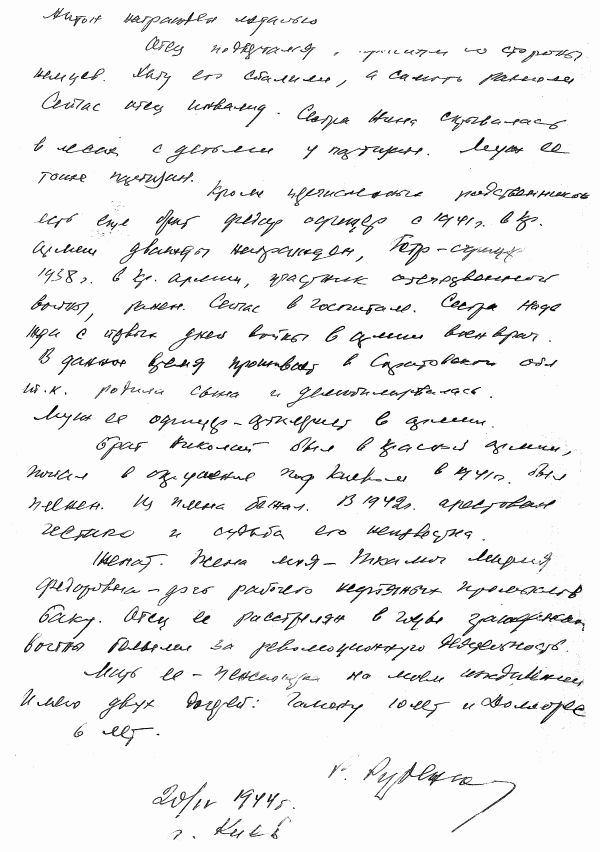 Антон награжден медалью
Отец подвергался со стороны
немцев. Хату его спалили, а самого ранили
Сейчас отец инвалид. Сестра Нина скрывалась
в лесах с детьми у партизан. Муж ее
тоже партизан.
Кроме перечисленных родственников
есть еще брат Федор офицер с 1941 г. в Кр.
армии дважды награжден, Петр-
1938 г. в Кр. армии, участник отечественной
войны, ранен. Сейчас в госпитале. Сестра Наде
жда с первых дней войны в армии военврач.
В данное время проживает в Саратовской обл
т.к. родила сына и демобилизовалась.
Муж ее офицер-артиллерист в армии.
Брат Николай был в Красной армии,
попал в окружение под Киевом в 1941 г. был
пленен. Из плена бежал. В 1942 г. арестован
гестапо и судьба его неизвестна.
Женат. Жена моя - Мария
Федотовна - дочь рабочего нефтяных промыслов
Баку. Отец ее расстрелян в годы гражданской
войны белыми за революционную деятельность.
Мать ее - на моем иждивении
Имею двух дочерей: Тамару 10 лет и Долорес
6 лет.
20/IV 1944 г.
г. Киев